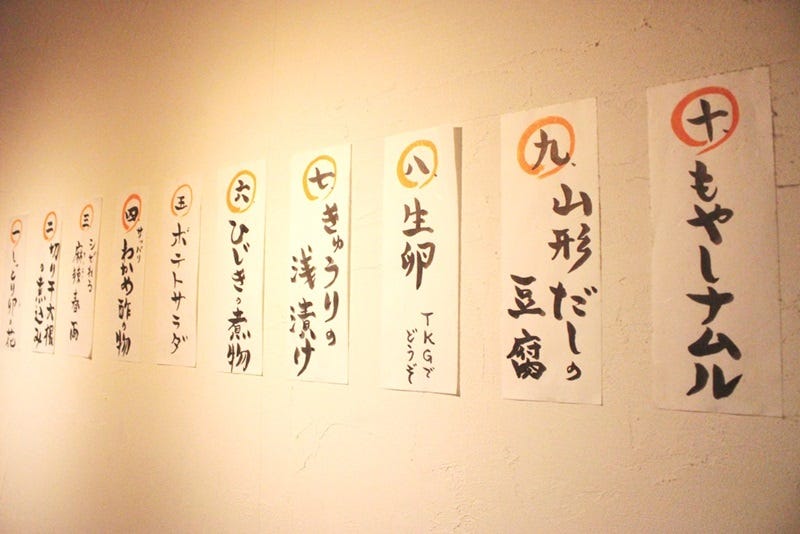 一、しっとり卯の花
二、切り干大根
の煮込み
三、シビれる
麻辣春雨
四、さっぱり
わかめ酢の物
五、ポテトサラダ
六、ひじきの煮物
七、きゅうりの
浅漬け
八、生卵
TKGで
どうぞ
九、山形だしの
豆腐
十、もやしナムル